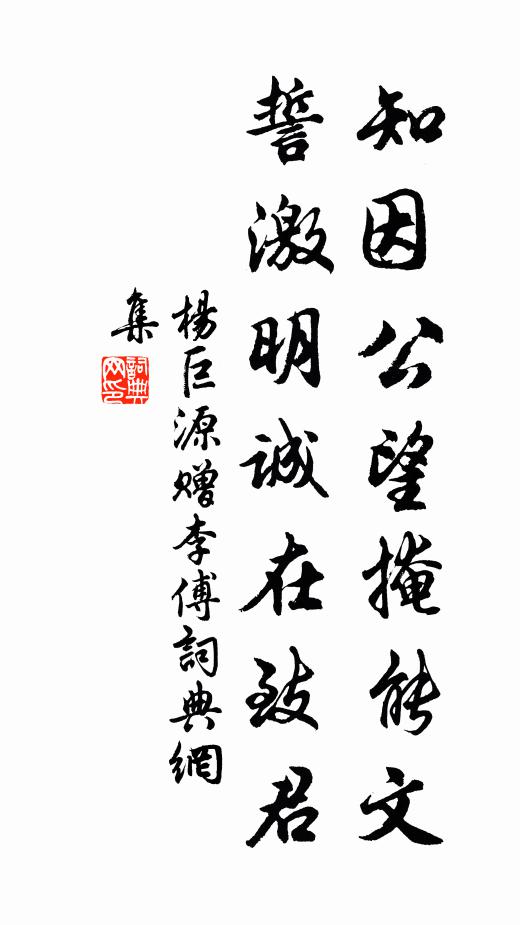 知因公望掩能文
誓激明誠在致君
楊巨源贈李傅詞典網
集
詞典
網印